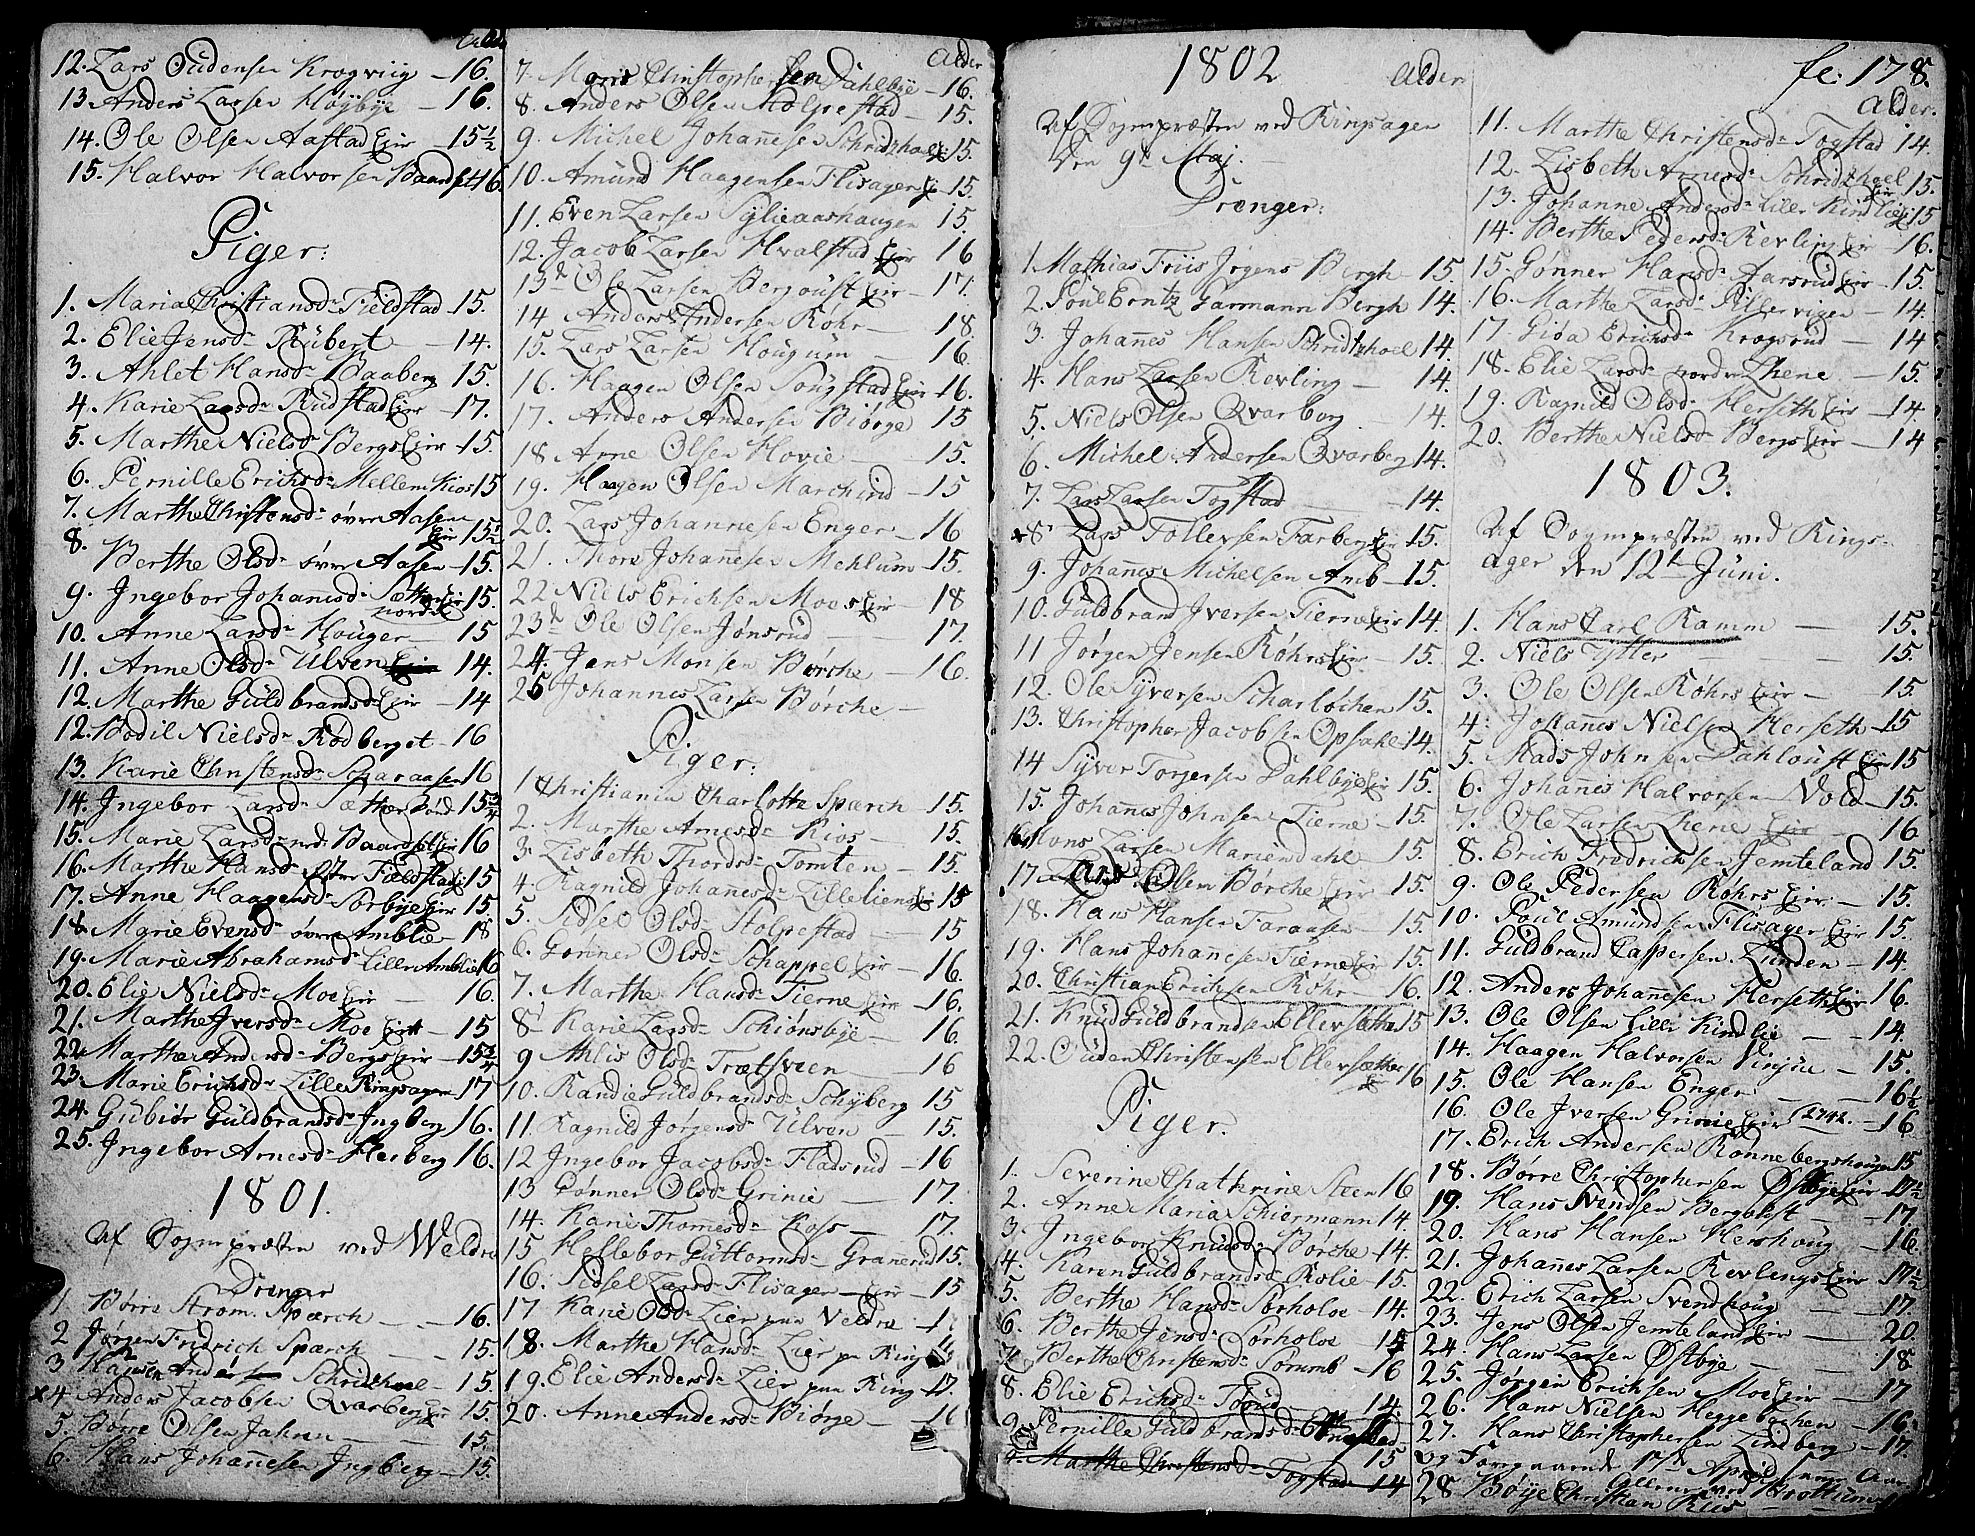 Alder
12. Lars Oudensen Krogviig — 16.
13 Anders Larsen Høÿbÿe — 16.
14. Ole Olsen Aastad Eier — 15½
15. Halvor Halvorsen 16.
Piger:
1. Maria Christiansdr Fieldstad 15.
2. Elie Jensdr Skübert — 14.
3. Ahlet Hansdr Baaberg 15.
4. Karie Larsdr Rüdstad Eier — 17.
5. Marthe Nielsdr Bergs Eier — 15.
6. Pernille Erichsdr Mellem Kios 15
7. Marthe Christensdr øvre Aasen Eier 15½
8. Berthe Olsdr øvre Aasen — 15.
9. Ingebor Johanisdr Sæther nordre Eier 15.
10. Anne Larsdr Houger — 15
11. Anne Olsdr Ulven Eier 14.
12. Marthe Güldbrandsdr Eier — 14
12. Bodil Nielsdr Rødberget — 16
13. Karie Christensdr Scharaasen 16
14. Ingebor Larsdr Sæther 15¾
15. Marie Larsdr Eier 16
16. Marthe Hansdr østre Fieldstad 15
17. Anne Haagensdr Sørbÿe Eier 15.
18 Marie Evensdr øvre Amblie — 18
19. Marie Abrahamsdr Lille Amblie 16
20. Elie Nielsdr Moe Eier — 16.
21. Marthe Iversdr Moe Eier — 15
22 Marthe Andersdr Bergs Eier — 15¾
23. Marie Erichsdr Lille Ringsager 17
24. Gubiør Güldbrandsdr Ingberg 16.
25. Ingebor Arnesdr Herberg 16.
1801.
Af Sognepræsten ved Weldre
Drenger
1 Børre Strøm Spærch — 16.
2 Jørgen Fridrich Spærch — 15.
3 Schridshoel — 15.
x4 Anders Jacobsen Qvarberg Eier 15.
5. Børre Olsen Jahren — 15.
6. Hans Johanesen Ingberg — 15.
Alder
7. Moris Christophersen Dahlbÿe — 16.
8. Anders Olsen Stolpestad — 15.
9. Michel Johanesen Schridshoel 15.
10. Amünd Haagensen Flisager 15.
11. Even Larsen Sÿlieaashaugen 15.
12. Jacob Larsen Hvalstad Eier 16
13de Ole Larsen Bergoust Eier — 17.
14 Anders Andersen Røhr — 18.
15. Lars Larsen Hougum — 16.
16. Haagen Olsen Sougstad Eier 16.
17. Anders Andersen Biørge 15
18 Arne Olsen Hovie — 15.
19. Haagen Olsen — 15
20. Lars Johannesen Enger — 16
21. Thore Johanesen Mehlum — 15.
22 Niels Erichsen Moos Eier — 18
23de Ole Olsen Jønsrud 17.
24. Jens Monsen Børche — 16.
25 Johannes Larsen Børche —
Piger:
1 Christiania Charlotte Spærch — 15.
2. Marthe Arnesdr Kios — 15.
3. Lisbeth Thordsdr Tomten — 15.
4. Ragnild Johanesdr Lillelien Eier 15
5. Sidsel Olsdr Stolpestad — 15
6. Gønner Olsdr Schappel Eier — 16.
7. Marthe Hansdr Tierne Eier — 16.
8 Karie Larsdr Schiønsbÿe — 16.
9 Ahlis Olsdr Trætsveen — 16
10. Randie Güldbrandsdr Schÿberg 15
11. Ragnild Jørgensdr Ulven — 15.
12 Ingebor Jacobsdr Fladsrud — 16
13 Gønner Olsdr Grinie — 17.
14. Karie Thomesdr Koss — 17.
15 Hellebor Güttormsdr Granerüd 15.
16. Sidsel Larsdr Flisager — Eier — 15
17 Karie Olsdr Lier paa Veldre
18. Marthe Hansdr Lier paa Ring
19. Elie Andersdr Lier paa Ring 17.
20. Anne Andersdr Biørge —
1802
Alder
Af Sognepræsten ved Ringsager
den 9de Maj. —
Drenger:
1. Mathias Friis Jrgens Bergh 15.
2. Poül Erntz Garmann Bergh 14.
3. Johanes Hansen Schridshoel 14.
4. Hans Larsen Revling — 14.
5. Niels Olsen Qvarberg 14.
6. Michel Andersen Qvarberg 14.
7. Lars Larsen Togstad — 14.
x8 Lars Tollevsen Farberg Eier 15.
9. Johanes Michelsen Amb — 15.
10. Güldbrand Iversen Tierne Eier 14.
11 Jørgen Jensen Røhrs Eier — 15.
12. Ole Sÿversen Scharløchen 15.
13. Christopher Jacobsen Opsahl 14.
14 Sÿver Torgersen Dahlbÿe Eier 15.
15. Johanes Johnsen Tierne — 15.
16 Mons Larsen Mariendahl 15.
17 Olsen Børche Eier 15.
18. Hans Hansen Faraasen — 15.
19. Hans Johanesen Tierne Eier 15.
20. Christian Erichsen Røhr — 16.
21. Knüd Güldbrandsen Ellevsæther 15
22. Ouden Christensen Ellevsæther Eier 16
Piger.
1. Severine Chathrine Steen 16
2. Anne Maria Schiermann 14.
3. Ingebor Knudsdr Børche 14.
4. Karen Güldbrandsdr Rolie 15.
5. Berthe Hansdr Sørholve 14.
6. Berthe Jensdr Sørholve
7. Berthe Christensdr Sorumb — 16
8. Elie Erichsdr 14.
9. Pernille Guldbrandsdr 15
Marthe Christensdr Togstad 14
fc: 178.
Alder.
11. Marthe Christensdr Togstad 14.
12. Lisbeth Arnesdr Schridshoel Eier 15.
13. Johanne Andersdr Lille Kindlie 15
14. Berthe Pedersdr Revling Eier — 16.
15. Gønner Hansdr Aarsrud Eier — 15.
16. Marthe Larsdr Sillervigen — 14.
17 Gioa Erichsdr Krogsrud — 14
18. Elie Larsdr nordre Lhene — 15.
19. Ragnild Olsdr Herseth Eier — 14.
20. Berthe Nielsdr Bergs Eier — 14
1803.
Af Sognepræsten ved Rings-
ager den 12te Juni.
1. Hans Carl Ramm — 15.
2. Niels Ytter — 15.
3. Ole Olsen Røhrs Eier — 15
4. Johanes Nielsen Herseth — 15
5. Mads Johnsen Dahloust Eier 15
6. Johanes Halvorsen Vold — 15.
7. Ole Larsen Lhene Eier — 16
8. Erich Fredrichsen Jemteland 15.
9. Ole Pedersen Røhrs Eier — 15.
10. Poul Amündsen Flisager Eier 15.
11. Güldbrand Caspersen Lunden — 14.
12. Anders Johanesen Herseth Eier 16.
13. Ole Olsen Lille Kindlie — 14.
14. Haagen Halvorsen Vinjue — 15.
15. Ole Hansen Enger — 16½
16. Ole Iversen Grinie Eier — 16
17. Erich Andersen Rønnebergshougen 15
18. Børre Christophersen Østbÿe Eier 17½
19. Hans Svendsen Bergoust — 17.
20. Hans Hansen Hershoug — 16.
21. Johanes Larsen Revlings Eier 17½
22. Erich Larsen Svendhoug — 17.
23. Jens Olsen Jemteland Eier — 20.
24. Hans Larsen Østbÿe — 18.
25. Jørgen Erichsen Moe Eier — 17.
26. Hans Nielsen Heggebachen — 16.
27. Hans Christophersen Lindberg — 17.
28 Bøÿe Christian